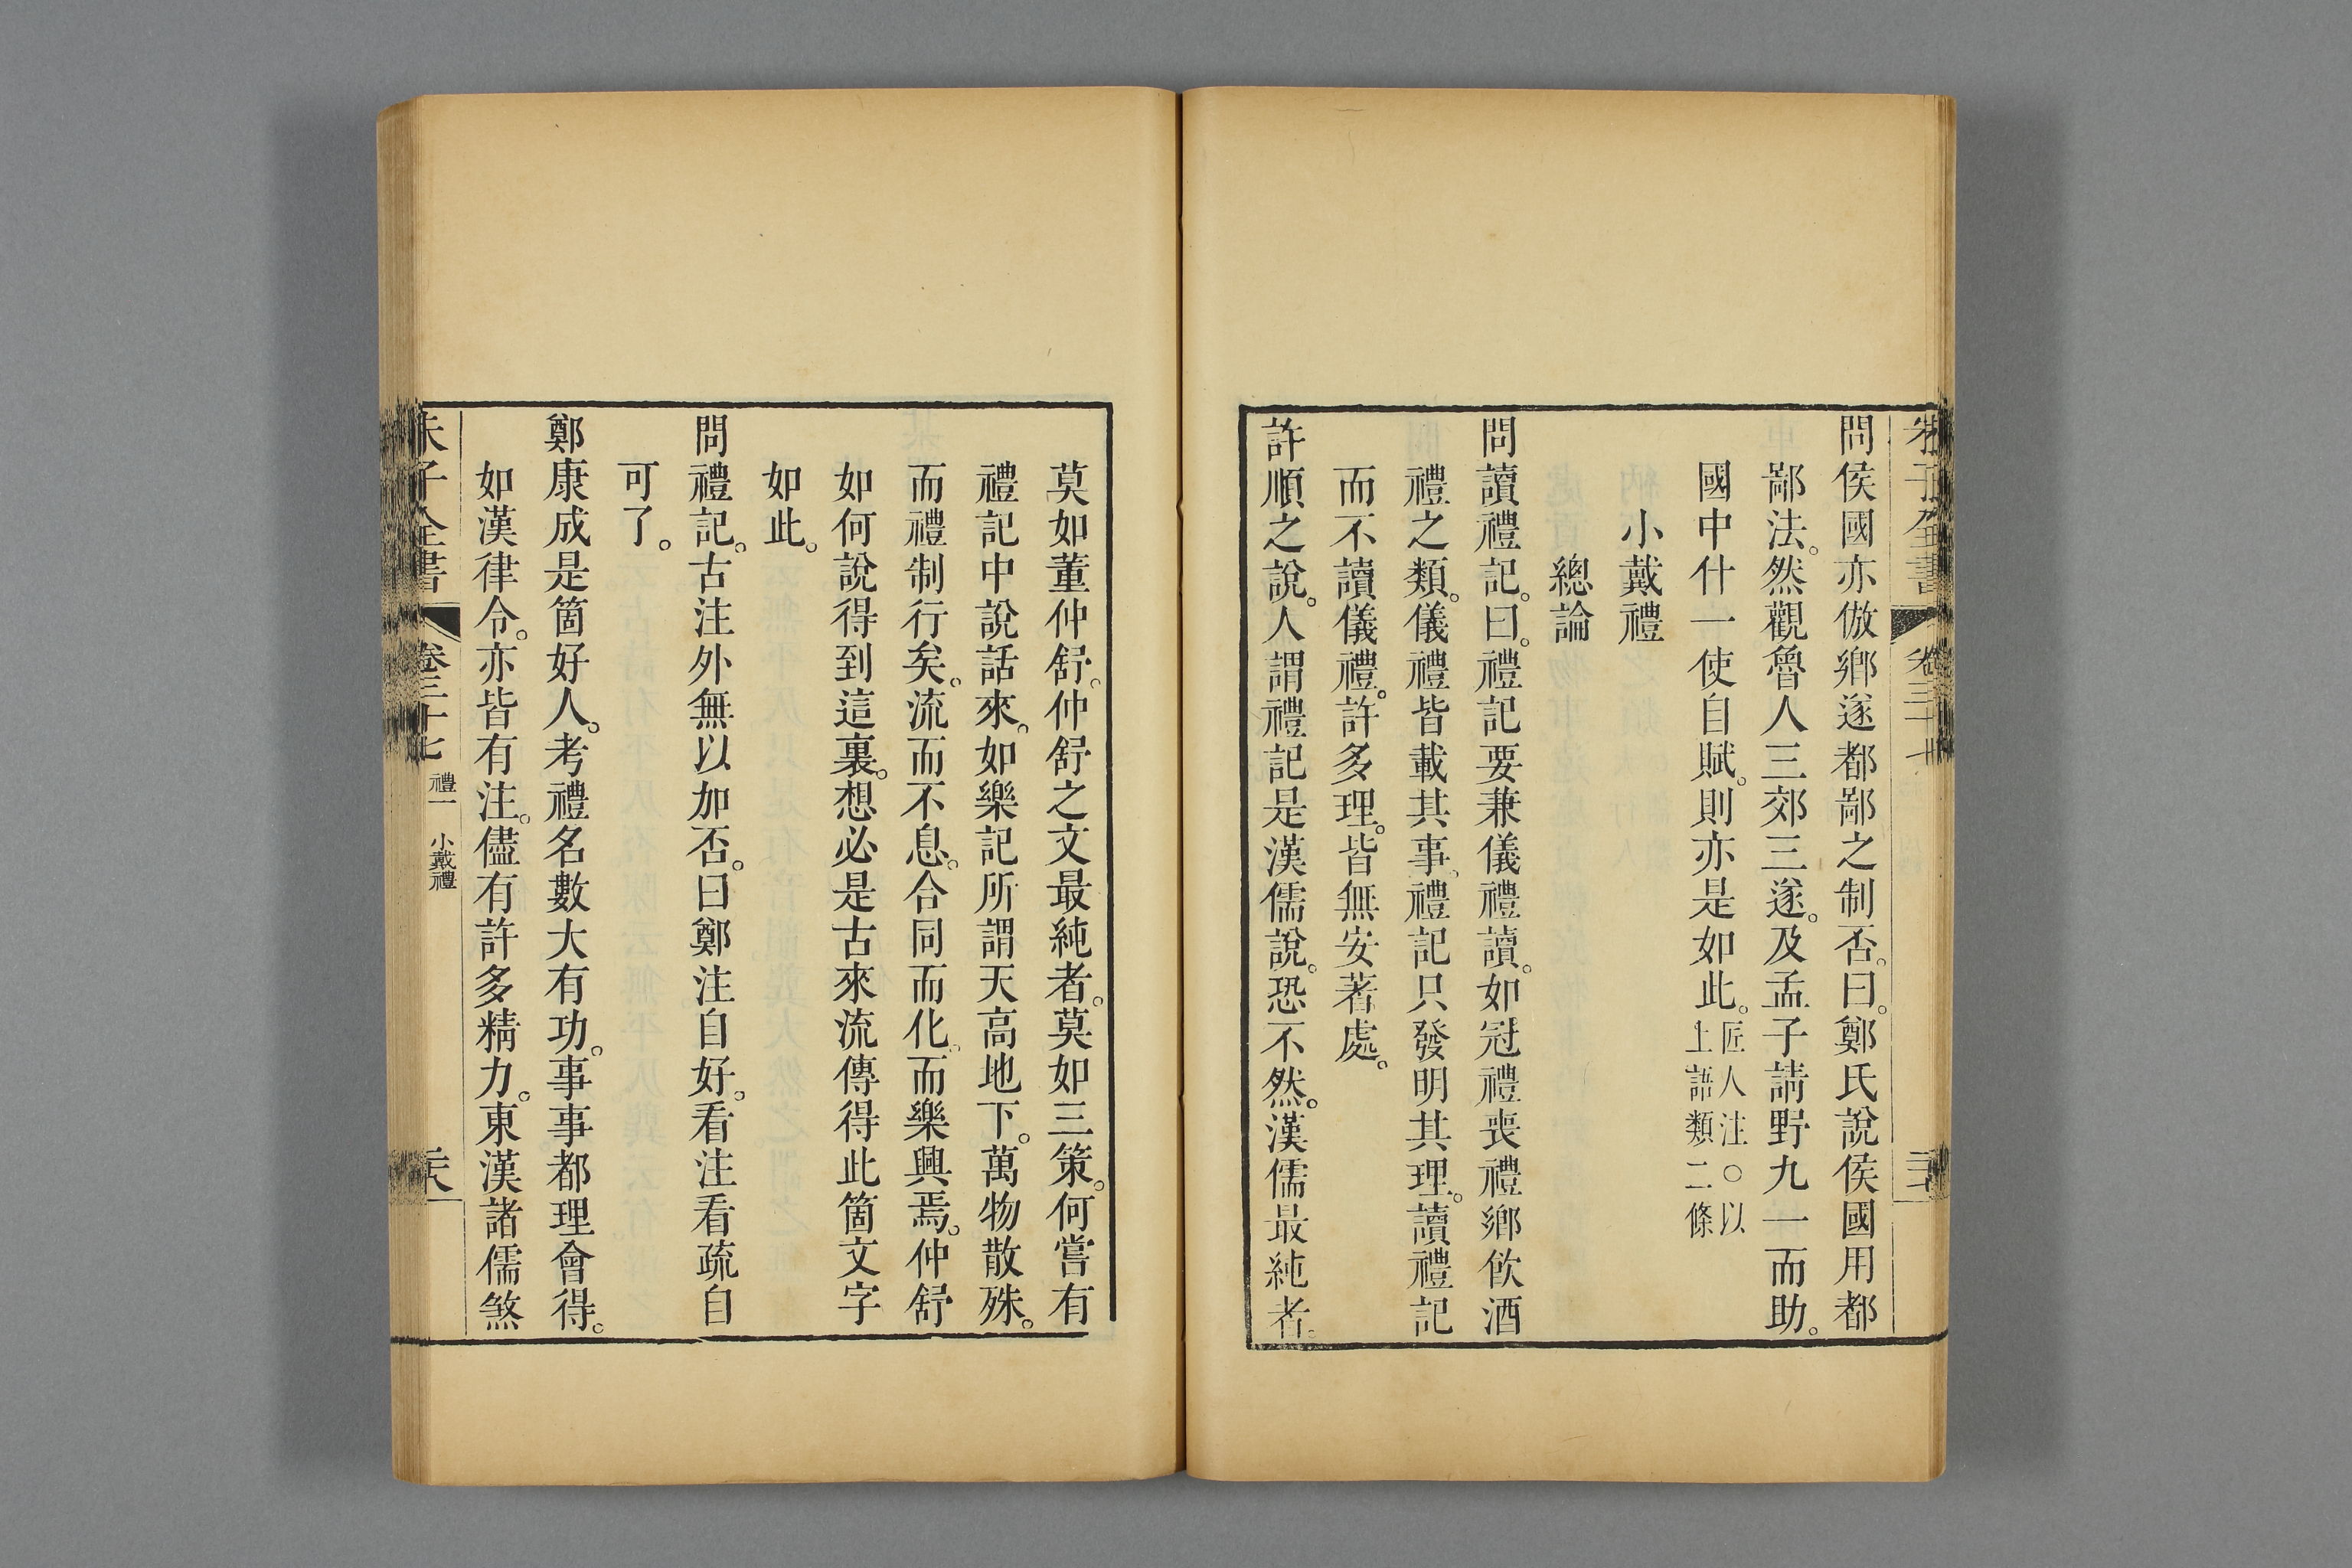 問侯國亦倣鄉遂都鄙之制否。曰。鄭氏說侯國用都
鄙法。然觀魯人三郊三遂。及孟子請野九一而助。
國中什一使自賦。則亦是如此。匠人注○以上語類二條
小戴禮
總論
問讀禮記。曰。禮記要兼儀禮讀。如冠禮喪禮鄉飲酒
禮之類。儀禮皆載其事。禮記只發明其理。讀禮記
而不讀儀禮。許多理。皆無安著處。
許順之說。人謂禮記是漢儒說。恐不然。漢儒最純者。
莫如董仲舒。仲舒之文最純者。莫如三策。何嘗有
禮記中說話來。如樂記所謂天高地下。萬物散殊。
而禮制行矣。流而不息。合同而化。而樂興焉。仲舒
如何說得到這裏。想必是古來流傳得此箇文字
如此。
問禮記。古注外無以加否。曰鄭注自好。看注看疏自
可了。
鄭康成是箇好人。考禮名數大有功。事事都理會得。
如漢律令。亦皆有注。儘有許多精力。東漢諸儒煞
朱子全書 卷三十七 禮一 小戴禮